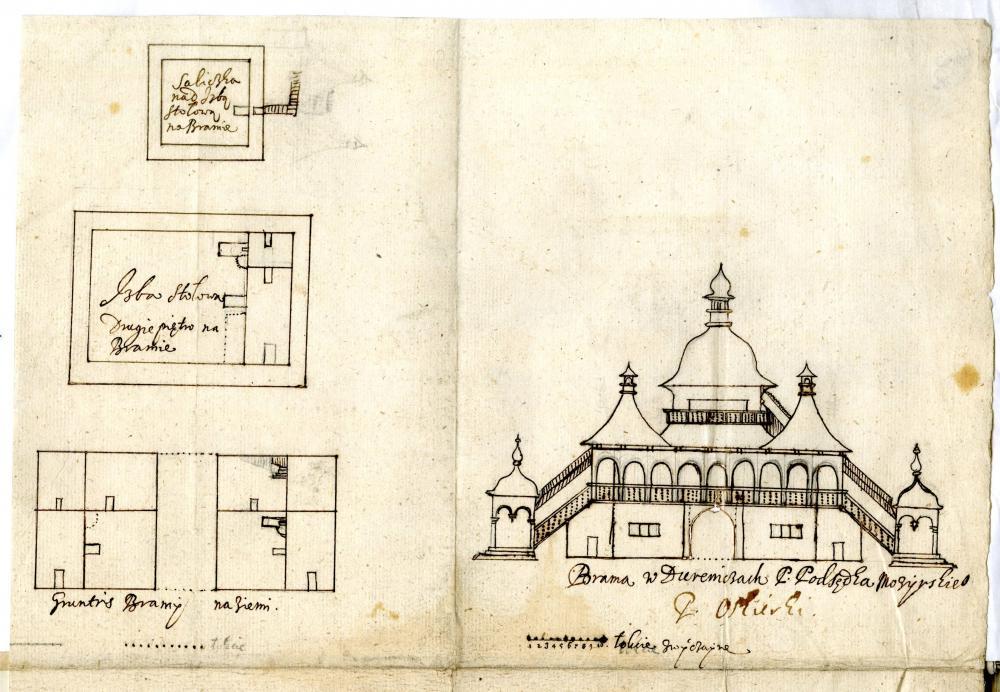 Saliczka
nad Izbą
Stołową
na Bramie
Izba Stołowa
Drugie piętro na
Bramie
Gruntris Bramy na ziemi.
łokcie
Brama w Duremiczach P. Podsędka Mozyrskieo
P. Oskierki.
1 2 3 4 5 6 7 8 9 10. łokcie zwyczayne